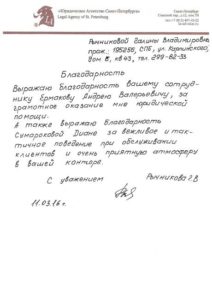 «Юридическое Агентство Санкт-Петербурга»
Legal Agency of St. Petersburg
Санкт-Петербург
Рычниковой Галины Владимировны
прож.: 195256, СПб, ул. Карпинского,
дом 8, кв 43, тел. 299-82-33
Благодарность
Выражаю благодарность вашему сотруд-
нику Ермакову Андрею Валерьевичу, за
грамотное оказание мне юридической
помощи.
А также выражаю благодарность
Сумароковой Диане за вежливое и так-
тичное поведение при обслуживании
клиентов и очень приятную атмосферу
в вашей конторе.
С уважением Рычникова Г.В
11.03.16г.